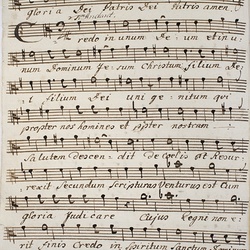 gloria Dei Patris Dei Patris amen.
Credo in unum Deum et in u
num Dominum Jesum Christum filium De
i filium Dei unigenitum qui
propter nos homines et propter nostram
Salutem descendit de Coelis et resur
rexit secundum scripturas Venturus est Cum
gloria Judicare Cujus Regni non e
rit finis Credo in Spiritum Sanctum Domin